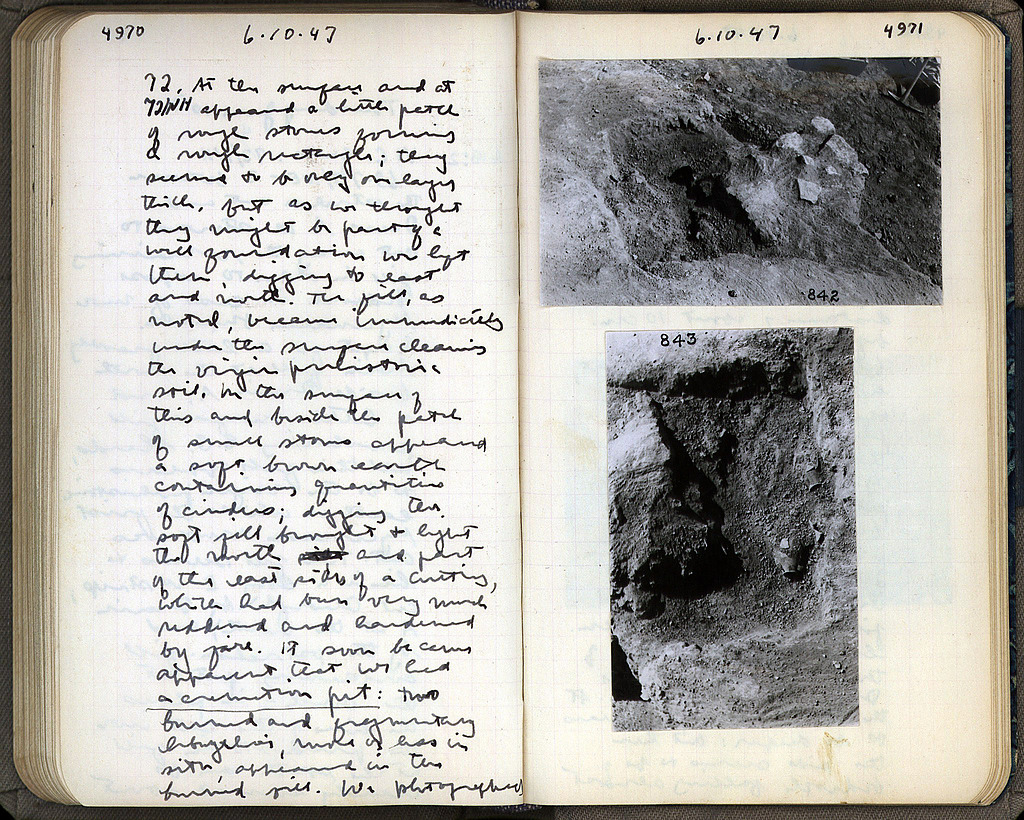 4970
6·10·47
72. At the surface and at
72/ΝΗ appeared a little patch
of rough stones forming
a rough rectangle; they
seemed to be only one layer
thick, but as we thought
they might be part of a
wall foundation we left
them, digging to east
and north. The fill, as
noted, became immediately
under the surface cleaning
the virgin prehistoric
soil. In the surface of
this and beside the patch
of small stones appeared
a soft brown earth
containing quantities
of cinders; digging this
soft fill brought to light
the north and part
of the east sides of a cutting,
which had been very much
reddened and hardened
by fire. It soon became
apparent that we had
a cremation pit: two
burned and fragmentary
lekythoi, more or less in
situ, appeared in the
burned fill. We photographed
6·10·47
4971
842
843